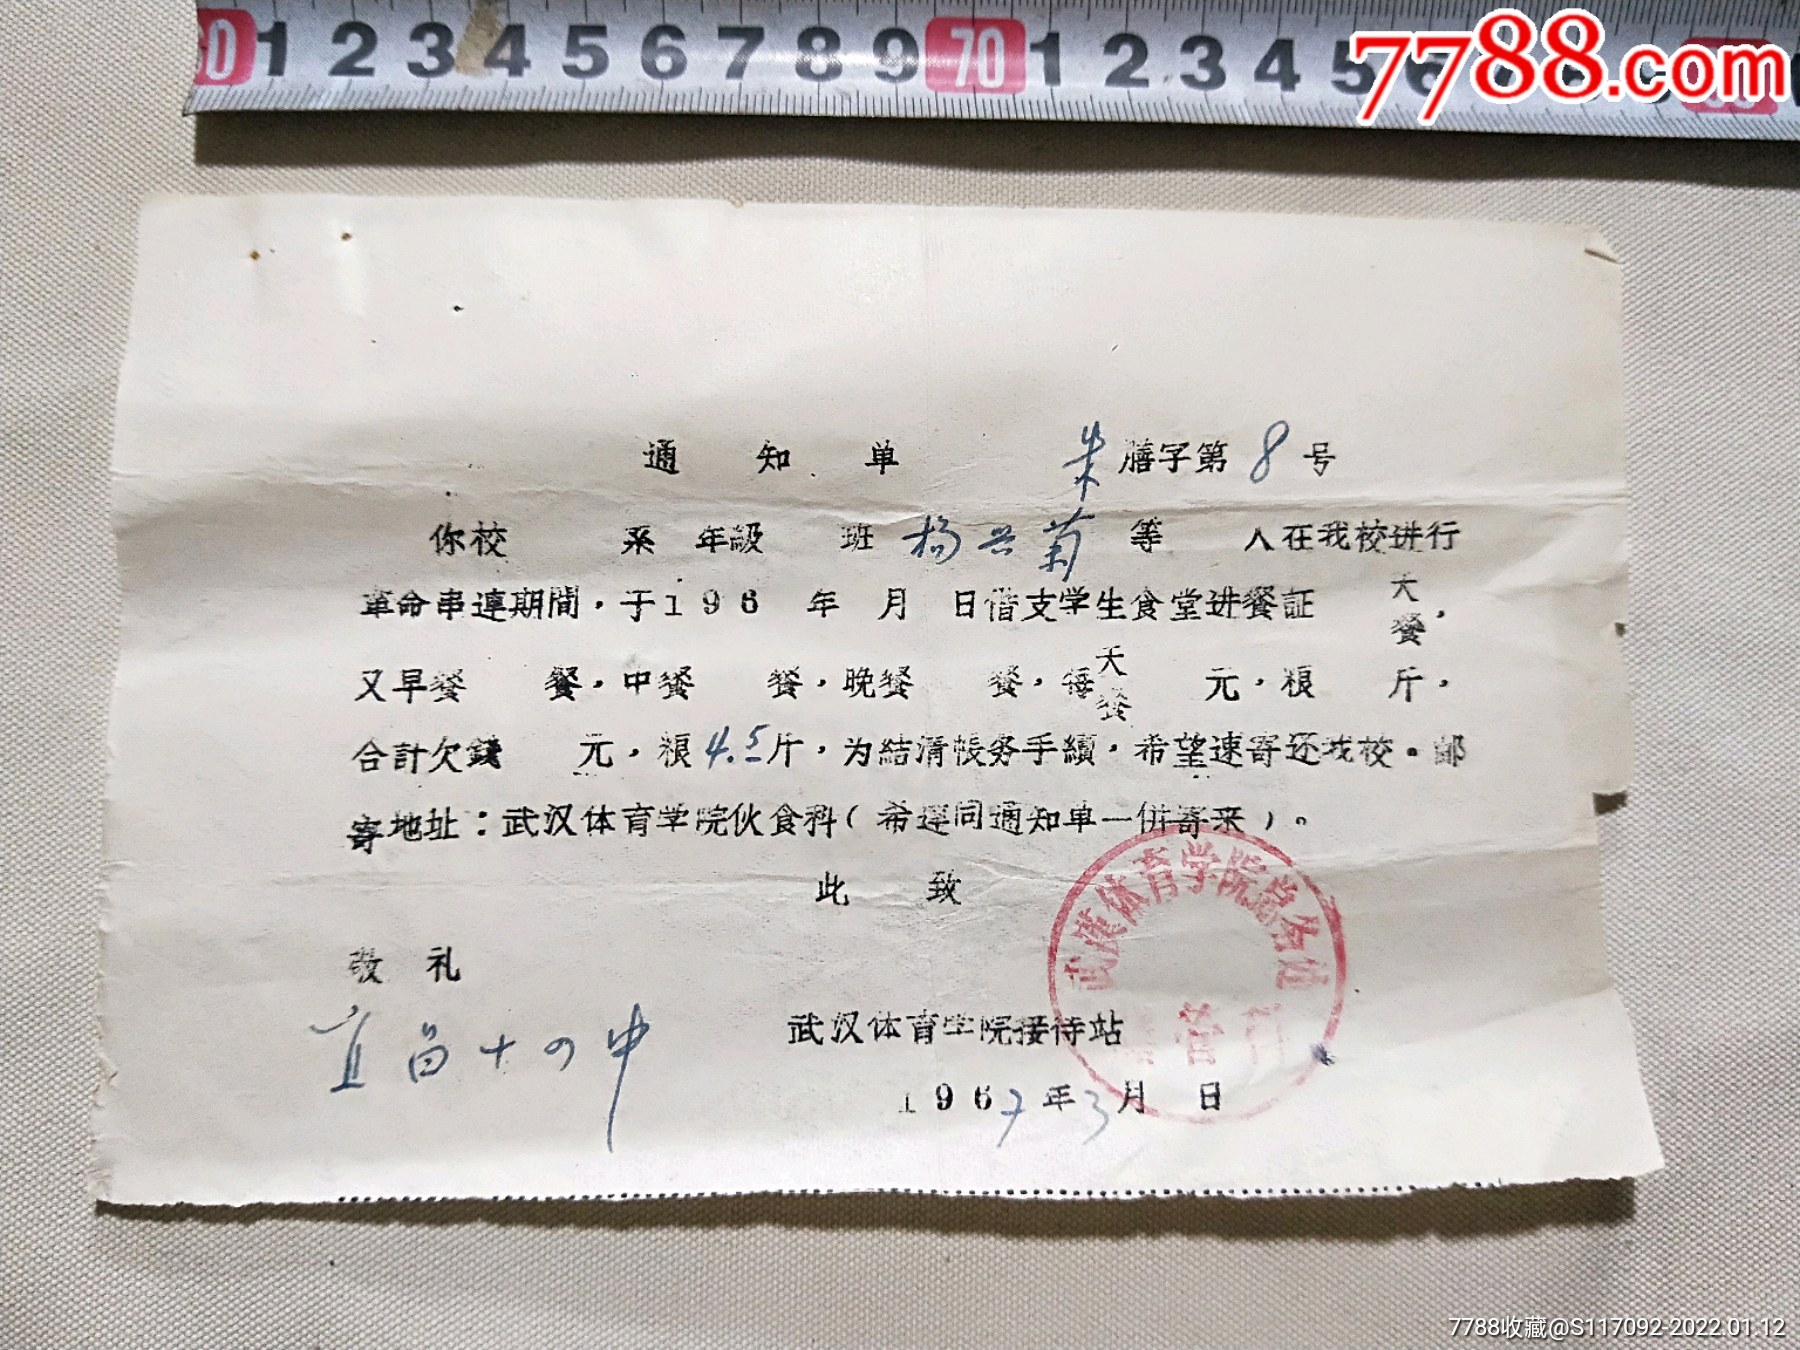 60 1 2 3 4 5 6 7 8 9 70 1 2 3 4 5 6
7788.com
通知单 朱膳字第8号
你校 系 年級 班 杨兴菊 等 人在我校进行
革命串連期間，于196 年 月 日借支学生食堂进餐証 天餐，
又早餐 餐，中餐 餐，晚餐 餐，每天餐 元，粮 斤，
合計欠錢 元，粮4.5斤，为結清帳务手續，希望速寄还我校。邮
寄地址：武汉体育学院伙食科（希連同通知单一併寄来）。
此致
敬礼
宜昌十四中
武汉体育学院接待站
1967年3月 日
武漢体育学院总务
7788收藏@S117092-2022.01.12